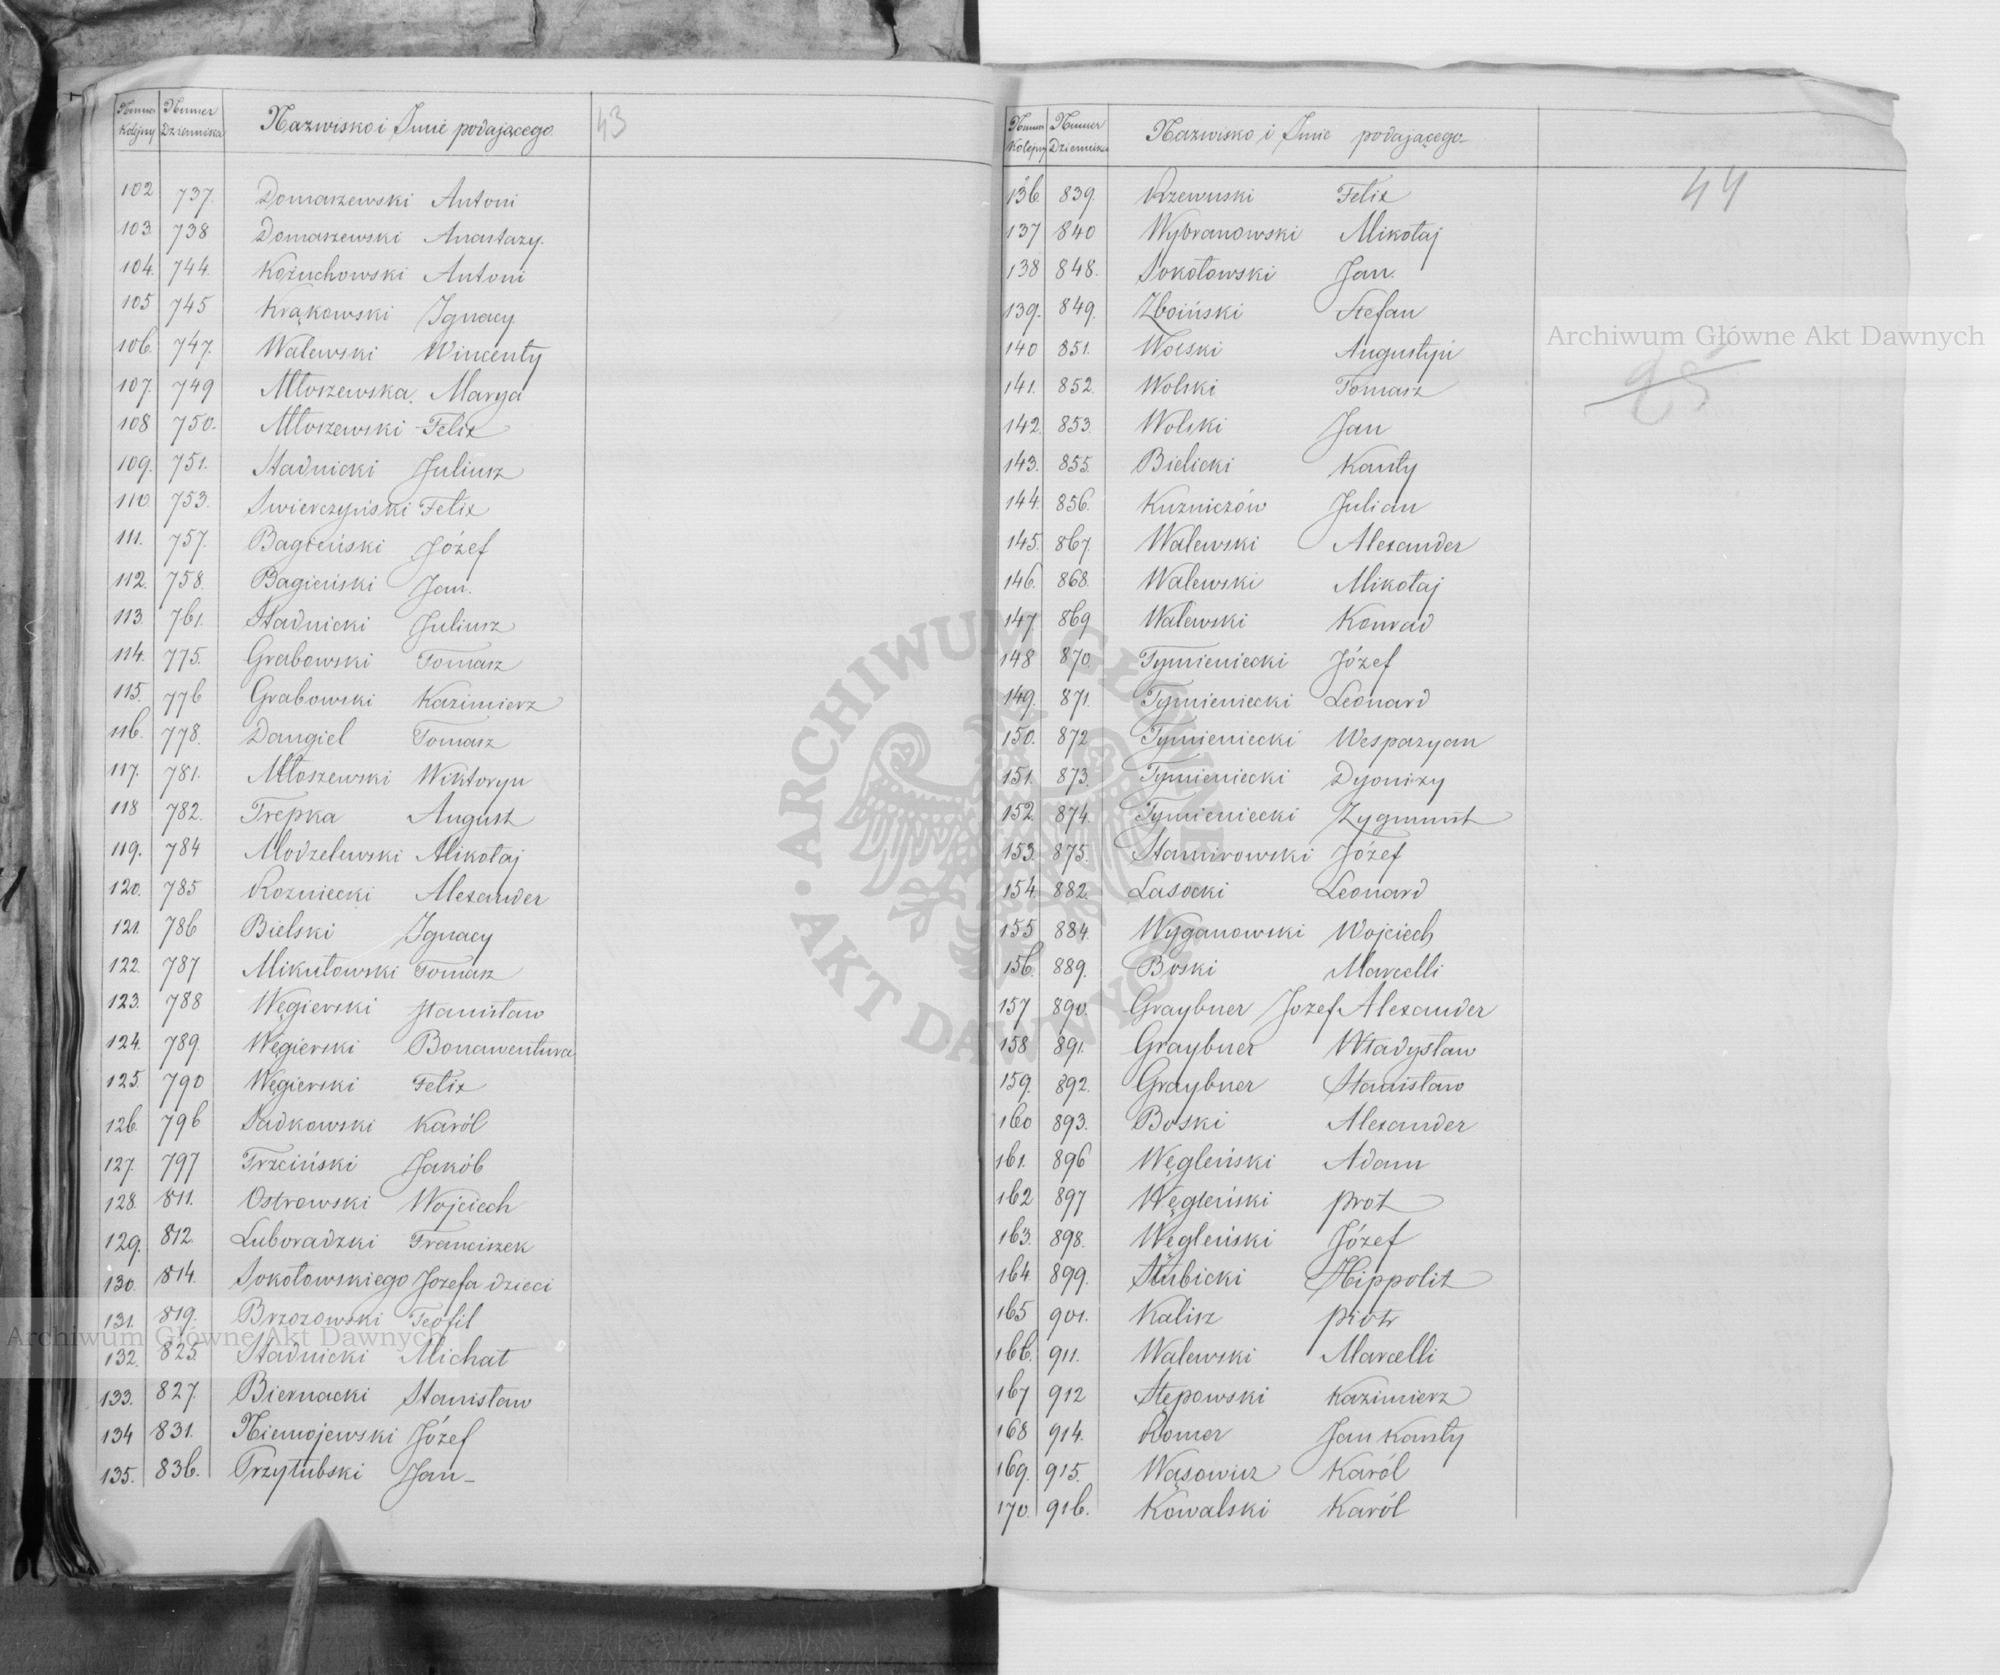 Numer Kolejny Numer Dziennika Nazwisko i Imie podającego 43
102 737. Domaszewski Antoni
103. 738 Domaszewski Anastazy.
104. 744. Kożuchowski Antoni
105 745 Krąkowski Ignacy
106. 747. Walewski Wincenty
107. 749 Młoszewska Marya
108 750. Młoszewski Felix
109. 751. Stadnicki Juliusz
110. 753. Swierczyński Felix
111. 757. Bagieński Józef
112. 758. Bagieński Jan.
113. 761. Stadnicki Juliusz
114. 775. Grabowski Tomasz
115. 776 Grabowski Kazimierz
116. 778. Dangiel Tomasz
117. 781. Młoszewski Wiktoryn
118 782. Trepka August
119. 784 Modzelewski Mikołaj
120. 785 Rozniecki Alexander
121. 786 Bielski Ignacy
122. 787 Mikułowski Tomasz
123. 788 Węgierski Stanisław
124. 789. Węgierski Bonawentura
125. 790 Węgierski Felix
126. 796 Sadkowski Karól
127. 797 Trzciński Jakób
128. 811. Ostrowski Wojciech
129. 812. Luboradzki Franciszek
130. 814. Sokołowskiego Jozefa dzieci
131. 819. Brzozowski Teofil
132. 825. Stadnicki Michał
133. 827. Biernacki Stanisław
134 831. Niemojewski Józef
135. 836. Przyłubski Jan
Numer Kolejny Numer Dziennika Nazwisko i Imie podającego
44
136. 839. Rzewuski Felix
137 840 Wybranowski Mikołaj
138 848. Sokołowski Jan.
139. 849. Zboiński Stefan
140 851. Wolski Augustyn
141. 852. Wolski Tomasz
142. 853. Wolski Jan
143. 855. Bielicki Kanty
144. 856. Kuzniczów Julian
145. 867. Walewski Alexander
146. 868. Walewski Mikołaj
147 869 Walewski Konrad
148 870. Tymieniecki Józef
149. 871. Tymieniecki Leonard
150. 872 Tymieniecki Wespazyan
151. 873. Tymieniecki Dyonizy
152. 874. Tymieniecki Zygmunt
153. 875. Stamirowski Józef
154. 882. Lasocki Leonard
155 884. Wyganowski Wojciech
156. 889. Boski Marcelli
157 890. Graybner Jozef Alexander
158 891. Graybner Władysław
159. 892. Graybner Stanisław
160 893. Boski Alexander
161. 896 Węgleński Adam
162 897 Węgleński Prot
163. 898. Węgleński Józef
164. 899. Słubicki Hippolit
165 901. Kalisz Piotr
166. 911. Walewski Marcelli
167 912 Stępowski Kazimierz
168 914. Romer Jan Kanty
169. 915. Wąsowicz Karól
170. 916. Kowalski Karól
Archiwum Główne Akt Dawnych
Archiwum Główne Akt Dawnych
ARCHIWUM GŁÓWNE AKT DAWNYCH